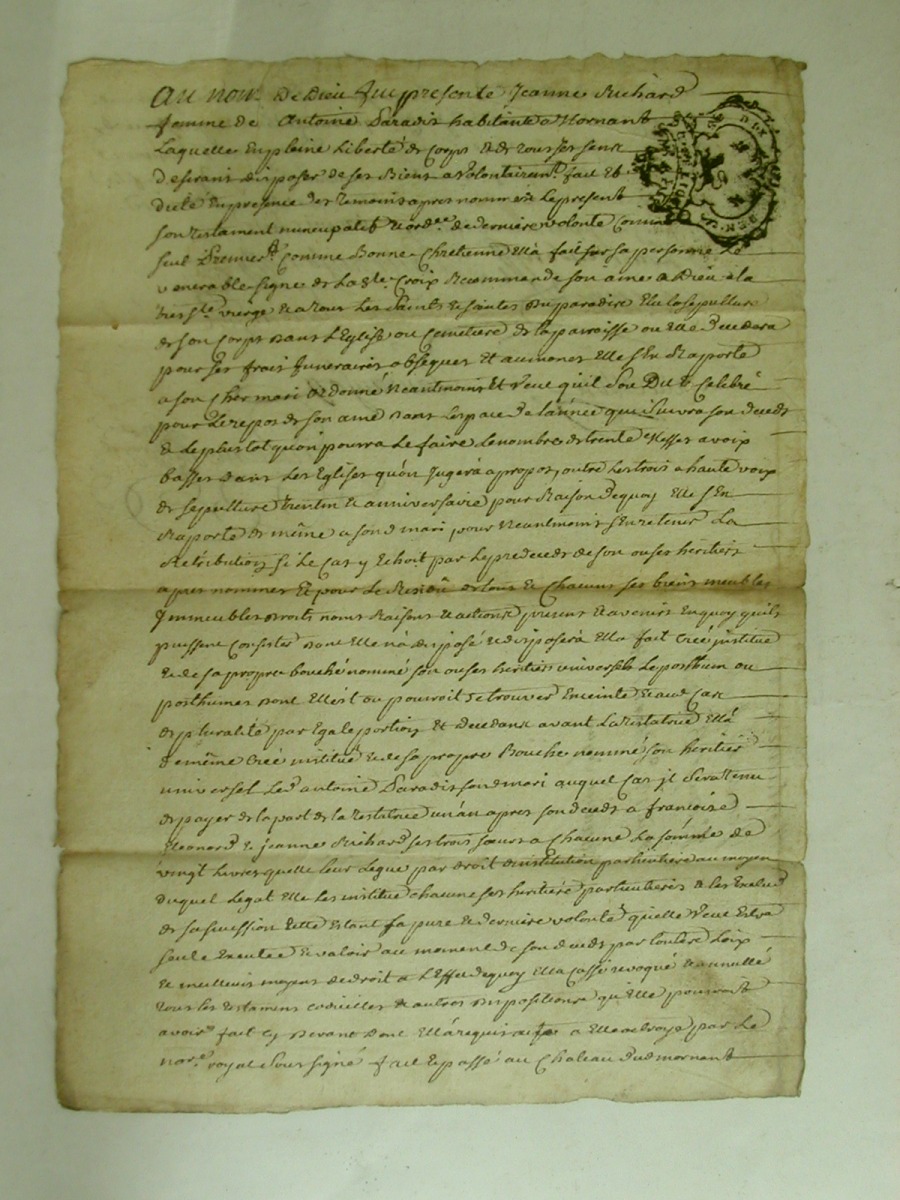 Au nom De Dieu fut presente Jeanne Richard
femme de Antoine Paradis habitante a Mornant
Laquelle En pleine Liberté de Corps Et de tous ses sens
Desirant disposer de ses Biens a volontairemt. fait Et
dicté En presence des temoins apres nommés Le present
son testament nuncupatif Et ord.re de derniere volonté Comme
seul Premiert. Comme Bonne Chretienne Ella fait sur sa personne Le
venerable signe de La Ste. Croix Recommande son ame a Dieu a la
tres Ste. vierge Et a tous Les Saints Et saintes du paradis Elu la sepulture
de son Corps dans L'Eglise ou Cemetiere de la parroisse ou Elle Decedera
pour ses frais funeraires obseques Et aumones Elle s'En Raporte
a son Cher mari ordonné Neantmoins Et veut qu'il soit Dit Et Celebré
pour Le repos de son ame dans L'espace de l'année qui suivra son deceds
& Le plus tot qu'on pourra Le faire Le nombre de trente Messes a voix
basses dans Les Eglises qu'on Jugera a propos, outre Les trois a haute voix
de sepulture trentin Et anniversaire pour Raison dequoy Elle s'En
Raporte de même a son d mari, pour Neantmoins En retenir La
Rétribution si Le Cas y Echoit par Le predeceds de son ou ses heritiers
apres nommés Et pour Le Residû de tous Et Chacuns ses biens meubles
Immeubles droits noms Raisons Et actions presents Et avenirs En quoy qu'ils
puissent Consister dont Elle n'a disposé Et disposera Ella fait Créé institué
Et de sa propre bouche nommé son ou ses heritiers universels Le posthum ou
posthumes dont Elle est ou pourroit se trouver Enceinte Et aud Cas
de pluralité par Egale portion Et decedant avant La testatrice Ella
de même Créé institué Et de sa propre Bouche nommé son heritier
universel Led antoine Paradis son d mari auquel Cas il sera tenu
de payer de la part de la testatrice un an apres son deceds a francoise
Eleonord & jeanne Richard ses trois soeurs a Chacune La somme de
vingt Livres quelle leur Legue par droit d'institution particuliere au moyen
duquel Legat Elle Les institue chacune ses heritiere particulieres & les Exclud
de sa succession Cette Estant sa pure Et derniere volonté qu'elle veut Estre
seule Executée Et valoir au moment de son deceds par toutes Loix
Et meilleurs moyens de droit a L'Effet dequoy Ella Cassé revoqué Et annullé
tous les testamens codicilles & autres dispositions qu'Elle pourroit
avoir fait Cy devant dont Ella requis acte a Elle octroyé par Le
nore. royal soussigné fait Et passé au Chateau dud mornant